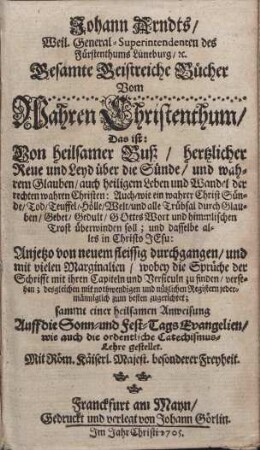 Johann Arndts/
Weil. General-Superintendenten des
Fürstenthums Lüneburg/ ꝛc.
Gesamte Geistreiche Bücher
Vom
Wahren Christenthum/
Das ist:
Von heilsamer Buß / hertzlicher
Reue und Leyd über die Sünde/ und wah-
rem Glauben/ auch heiligem Leben und Wandel der
rechten wahren Christen: Auch/ wie ein wahrer Christ Sün-
de/ Tod/ Teuffel/ Hölle/ Welt/ und alle Trübsal durch Glau-
ben/ Gebet/ Gedult/ GOttes Wort und himmlischen
Trost überwinden soll; und dasselbe al-
les in Christo JEsu:
Anjetzo von neuem fleissig durchgangen/ und
mit vielen Marginalien / wobey die Sprüche der
Schrifft mit ihren Capiteln und Versiculn zu finden/ verse-
hen; desgleichen mit nothwendigen und nützlichen Registern jeder-
männiglich zum besten zugerichtet;
sammt einer heilsamen Anweisung
Auff die Sonn- und Fest-Tags Evangelien/
wie auch die ordentliche Catechismus-
Lehre gestellet.
Mit Röm. Käiserl. Majest. besonderer Freyheit.
Franckfurt am Mayn/
Gedruckt und verlegt von Johann Görlin.
Im Jahr Christi 1705.